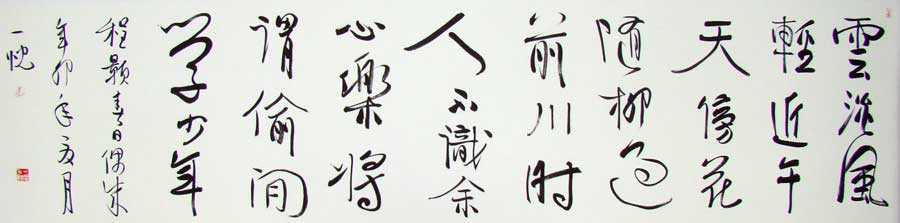 雲淡風
輕近午
天傍花
随柳過
前川时
人不識余
心樂将
謂偷闲
学少年
程顥春日偶成
辛卯年夏月